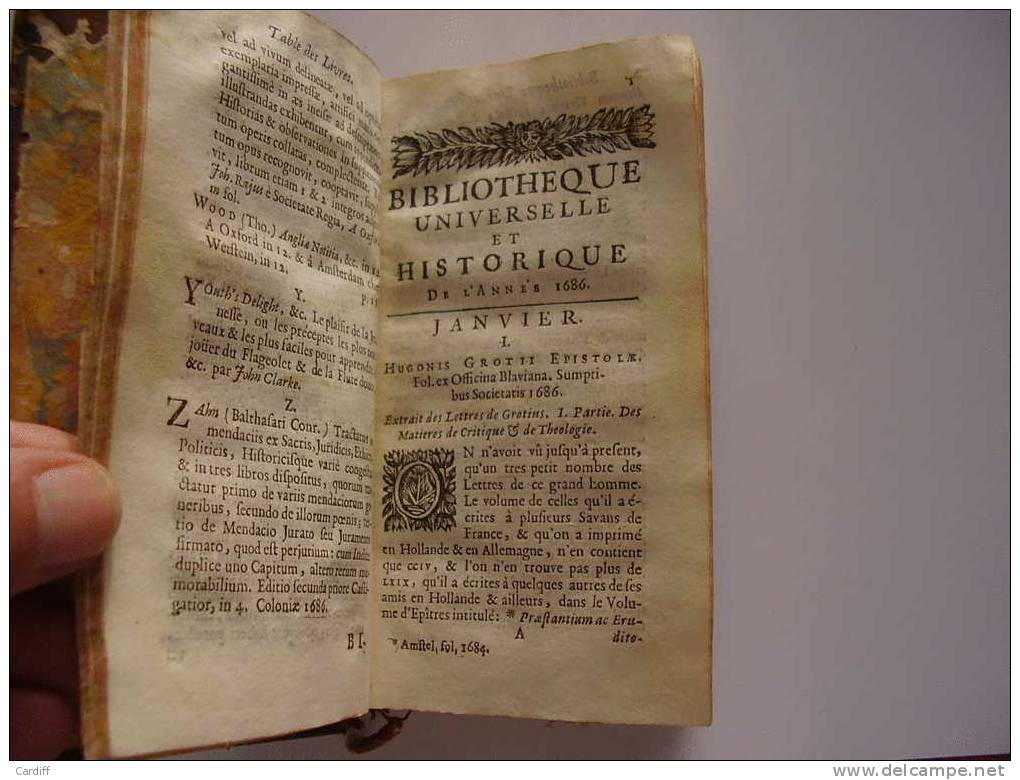 Table des Livres.
vel ad vivum delineatæ, vel ad
exemplaria impressæ, artifici
gantissimè in æs incisæ ad
illustrandas exhibentur, cum
Historias & observationes in
tum operis collatas, complectente.
tum opus recognovit, cooptavit,
vit, librum etiam 1 & 2 integros
Joh. Rajus è Societate Regia, A
in fol.
WOOD (Tho.) Angliæ Notitia, &c. in
A Oxford in 12. & à Amsterdam
Wetstein, in 12.
Y.
YOuth's Delight, &c. Le plaisir de la
nesse, ou les préceptes les plus
veaux & les plus faciles pour apprendre
joüer du Flageolet & de la Flute
&c. par John Clarke.
Z.
ZAhn (Balthasari Conr.) Tractatus
mendaciis ex Sacris, Juridicis,
Politicis, Historicisque variè
& in tres libros dispositus, quorum
ctatur primo de variis mendaciorum
neribus, secundo de illorum pœnis;
tio de Mendacio Jurato seu Juramento
firmato, quod est perjurium: cum Indice
duplice uno Capitum, altero rerum me-
morabilium. Editio secunda priore Casti-
gatior, in 4. Coloniæ 1686.
BI-
BIBLIOTHEQUE
UNIVERSELLE
ET
HISTORIQUE
DE L'ANNÉE 1686.
JANVIER.
I.
HUGONIS GROTII EPISTOLÆ,
Fol. ex Officina Blaviana. Sumpti-
bus Societatis 1686.
Extrait des Lettres de Grotius. I. Partie. Des
Matieres de Critique & de Theologie.
ON n'avoit vû jusqu'à present,
qu'un tres petit nombre des
Lettres de ce grand homme.
Le volume de celles qu'il a é-
crites à plusieurs Savans de
France, & qu'on a imprimé
en Hollande & en Allemagne, n'en contient
que CCIV, & l'on n'en trouve pas plus de
LXIX, qu'il a écrites à quelques autres de ses
amis en Hollande & ailleurs, dans le Volu-
me d'Epîtres intitulé: * Præstantium ac Eru-
A
dito-
* Amstel, fol, 1684.
Cardiff
www.delcampe.net